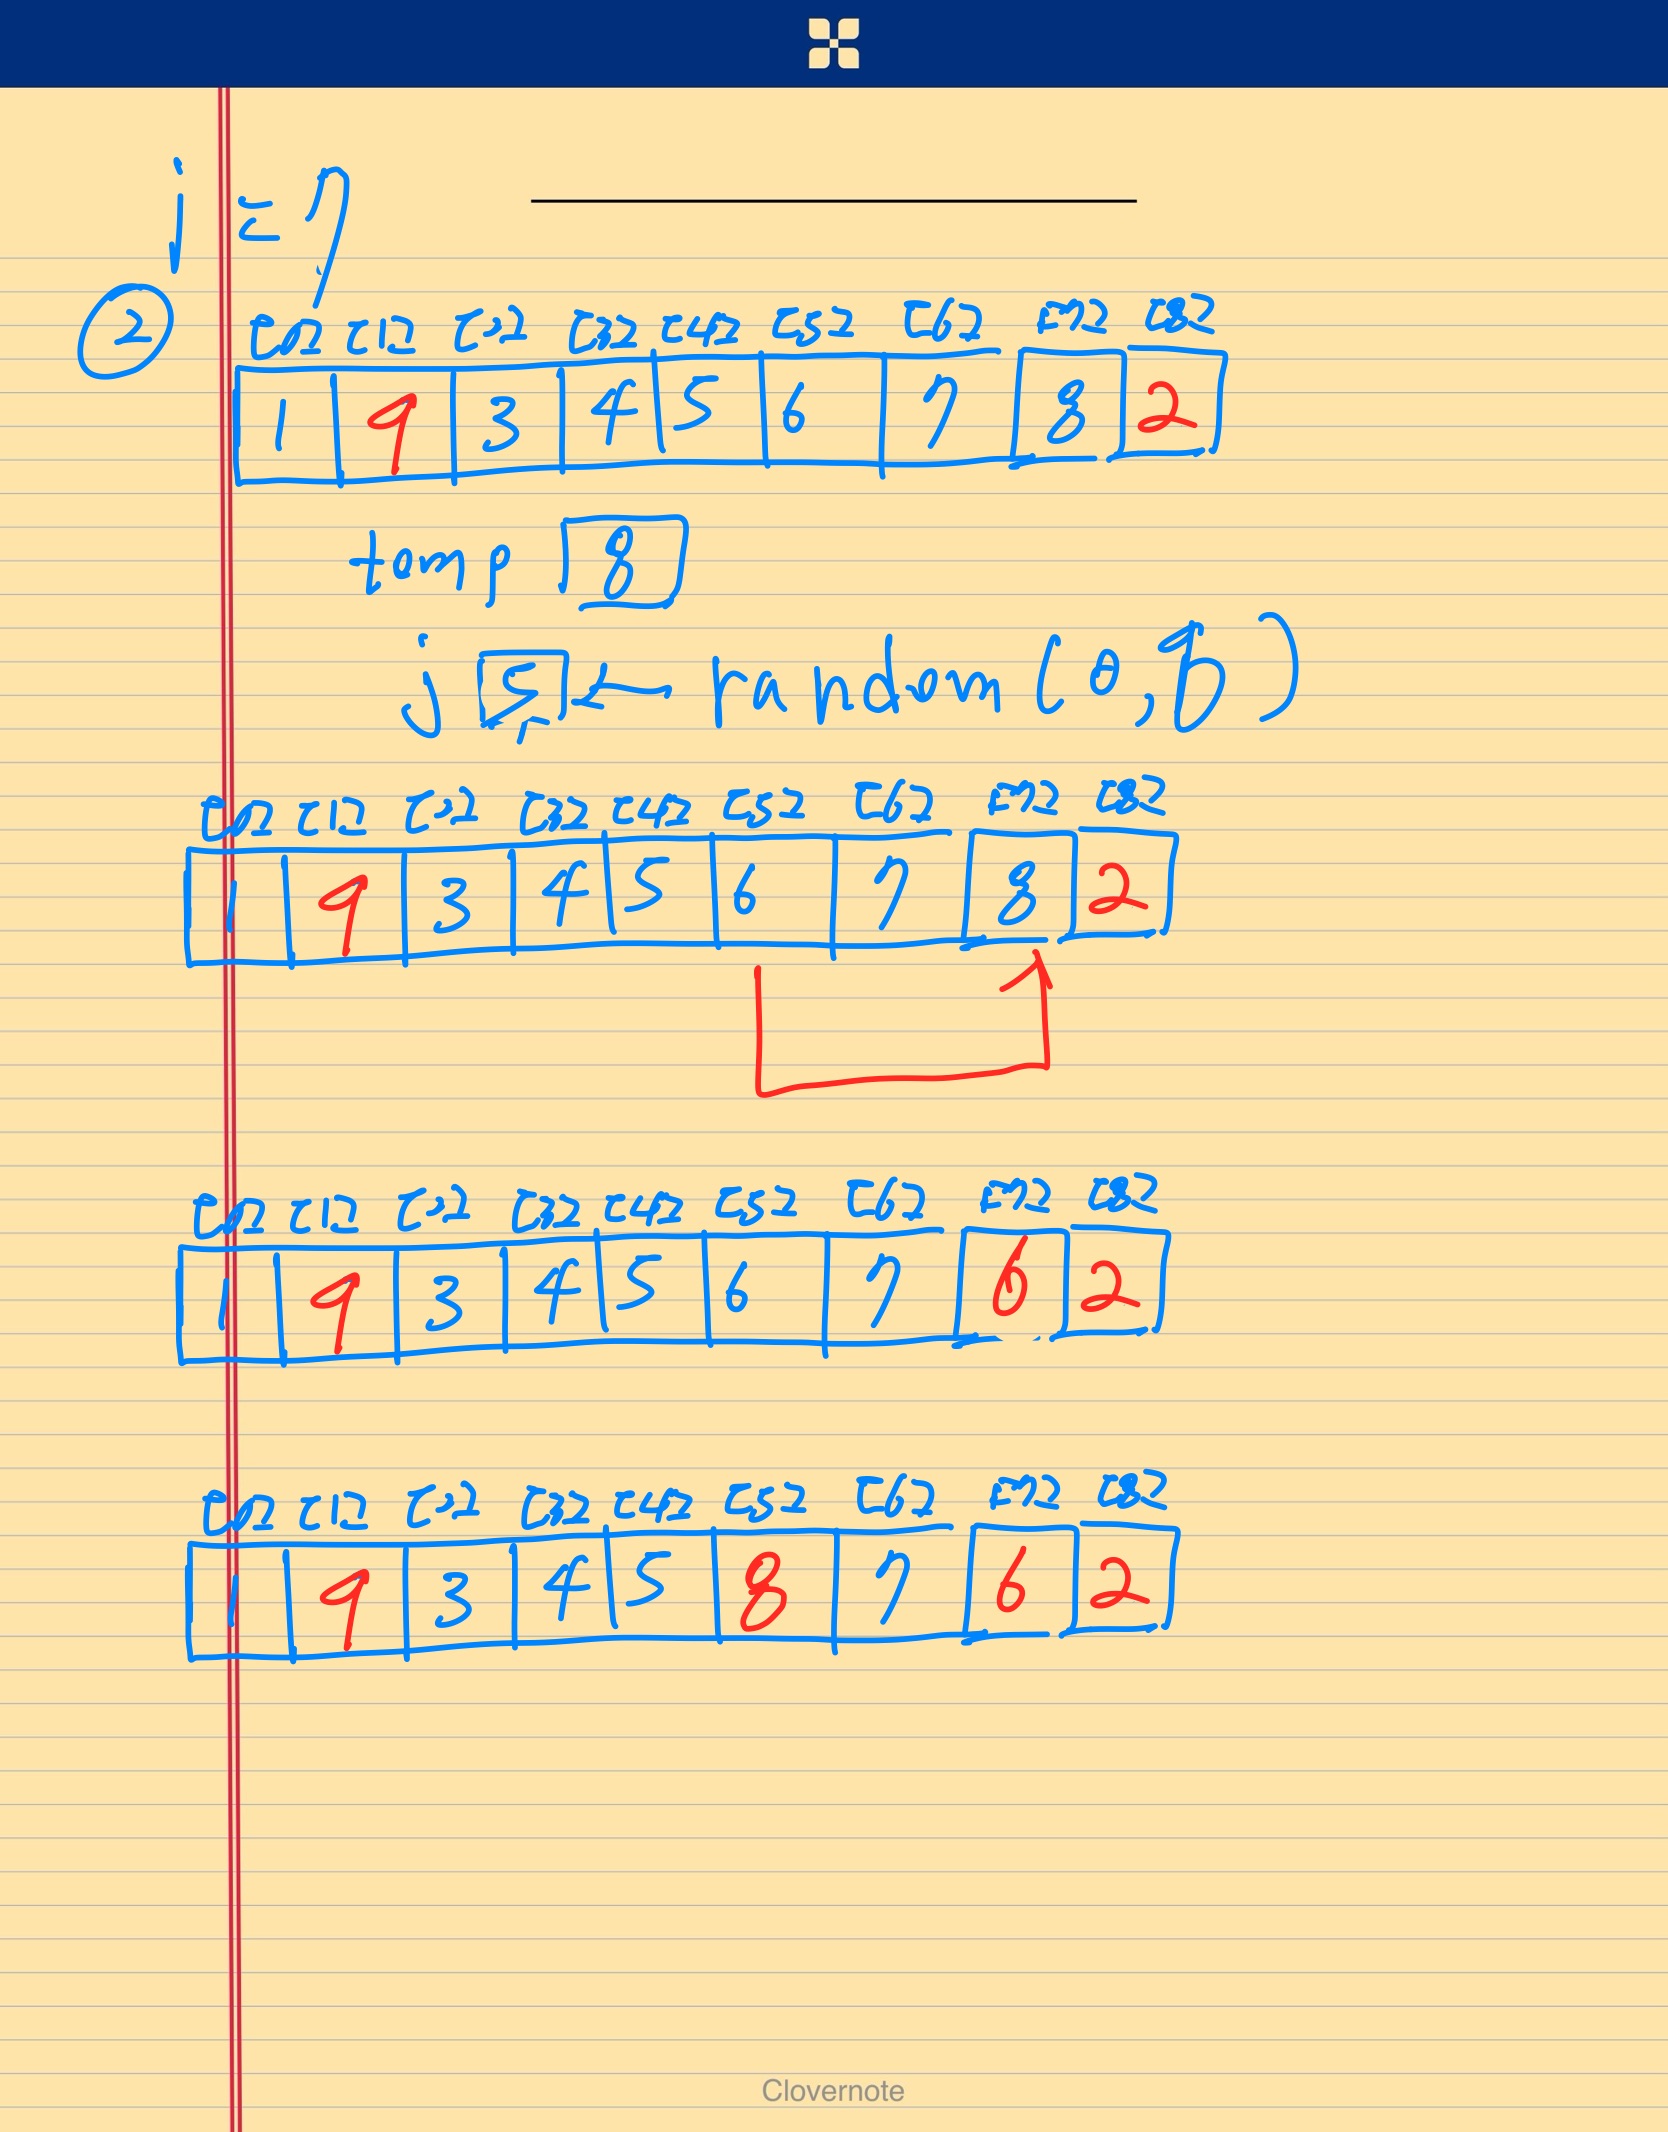 j = 7
②
[0] [1] [2] [3] [4] [5] [6] [7] [8]
1 9 3 4 5 6 7 8 2
temp 8
j 5 ← random(0,
[0] [1] [2] [3] [4] [5] [6] [7] [8]
1 9 3 4 5 6 7 8 2
[0] [1] [2] [3] [4] [5] [6] [7] [8]
1 9 3 4 5 6 7 6 2
[0] [1] [2] [3] [4] [5] [6] [7] [8]
1 9 3 4 5 8 7 6 2
Clovernote